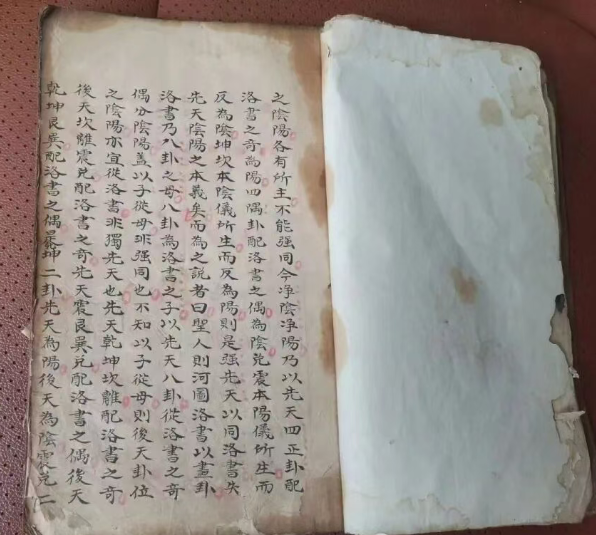 之陰陽各有所主不能强同今淨陰淨陽乃以先天四正卦配
洛書之奇為陽四隅卦配洛書之偶為陰兌震本陽儀所生而
反為陰坤坎本陰儀所生而反為陽則是强先天以同洛書失
先天陰陽之本義矣而為之說者曰聖人則河圖洛書以畫卦
洛書乃八卦之母八卦為洛書之子以先天八卦從洛書之奇
偶分陰陽蓋以子從母非强同也不知以子從母則後天卦位
之陰陽亦宜從洛書非獨先天也先天乾坤坎離配洛書之奇
後天坎離震兌配洛書之奇先天震艮巽兌配洛書之偶後天
乾坤艮巽配洛書之偶是坤二卦先天為陽後天為陰震兌二